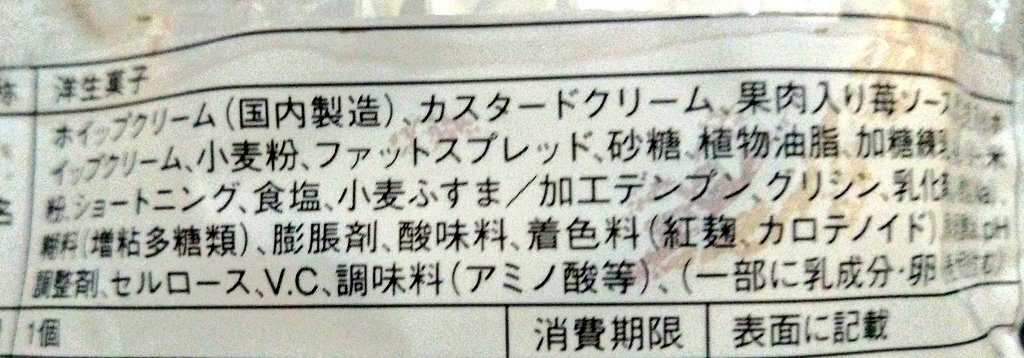 称 洋生菓子
ホイップクリーム(国内製造)、カスタードクリーム、果肉入り苺ソース
イップクリーム、小麦粉、ファットスプレッド、砂糖、植物油脂、加糖練乳
粉、ショートニング、食塩、小麦ふすま／加工デンプン、グリシン、乳化剤
糊料(増粘多糖類)、膨脹剤、酸味料、着色料(紅麹、カロテノイド)、pH
調整剤、セルロース、V.C、調味料(アミノ酸等)、(一部に乳成分・卵
1個 消費期限 表面に記載